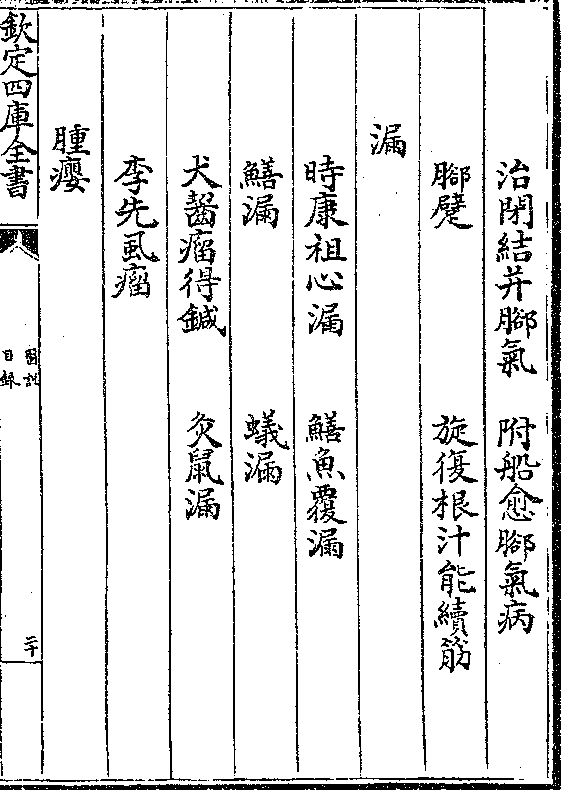 治閉結并腳氣　附船愈腳氣病
腳躄　旋復根汁能續筋
漏
時康祖心漏　鱔魚覆漏
鱔漏　蟻漏
犬齧瘤得鍼　灸鼠漏
李先風瘤
腫癭
欽定四庫全書
醫説
目錄
二十